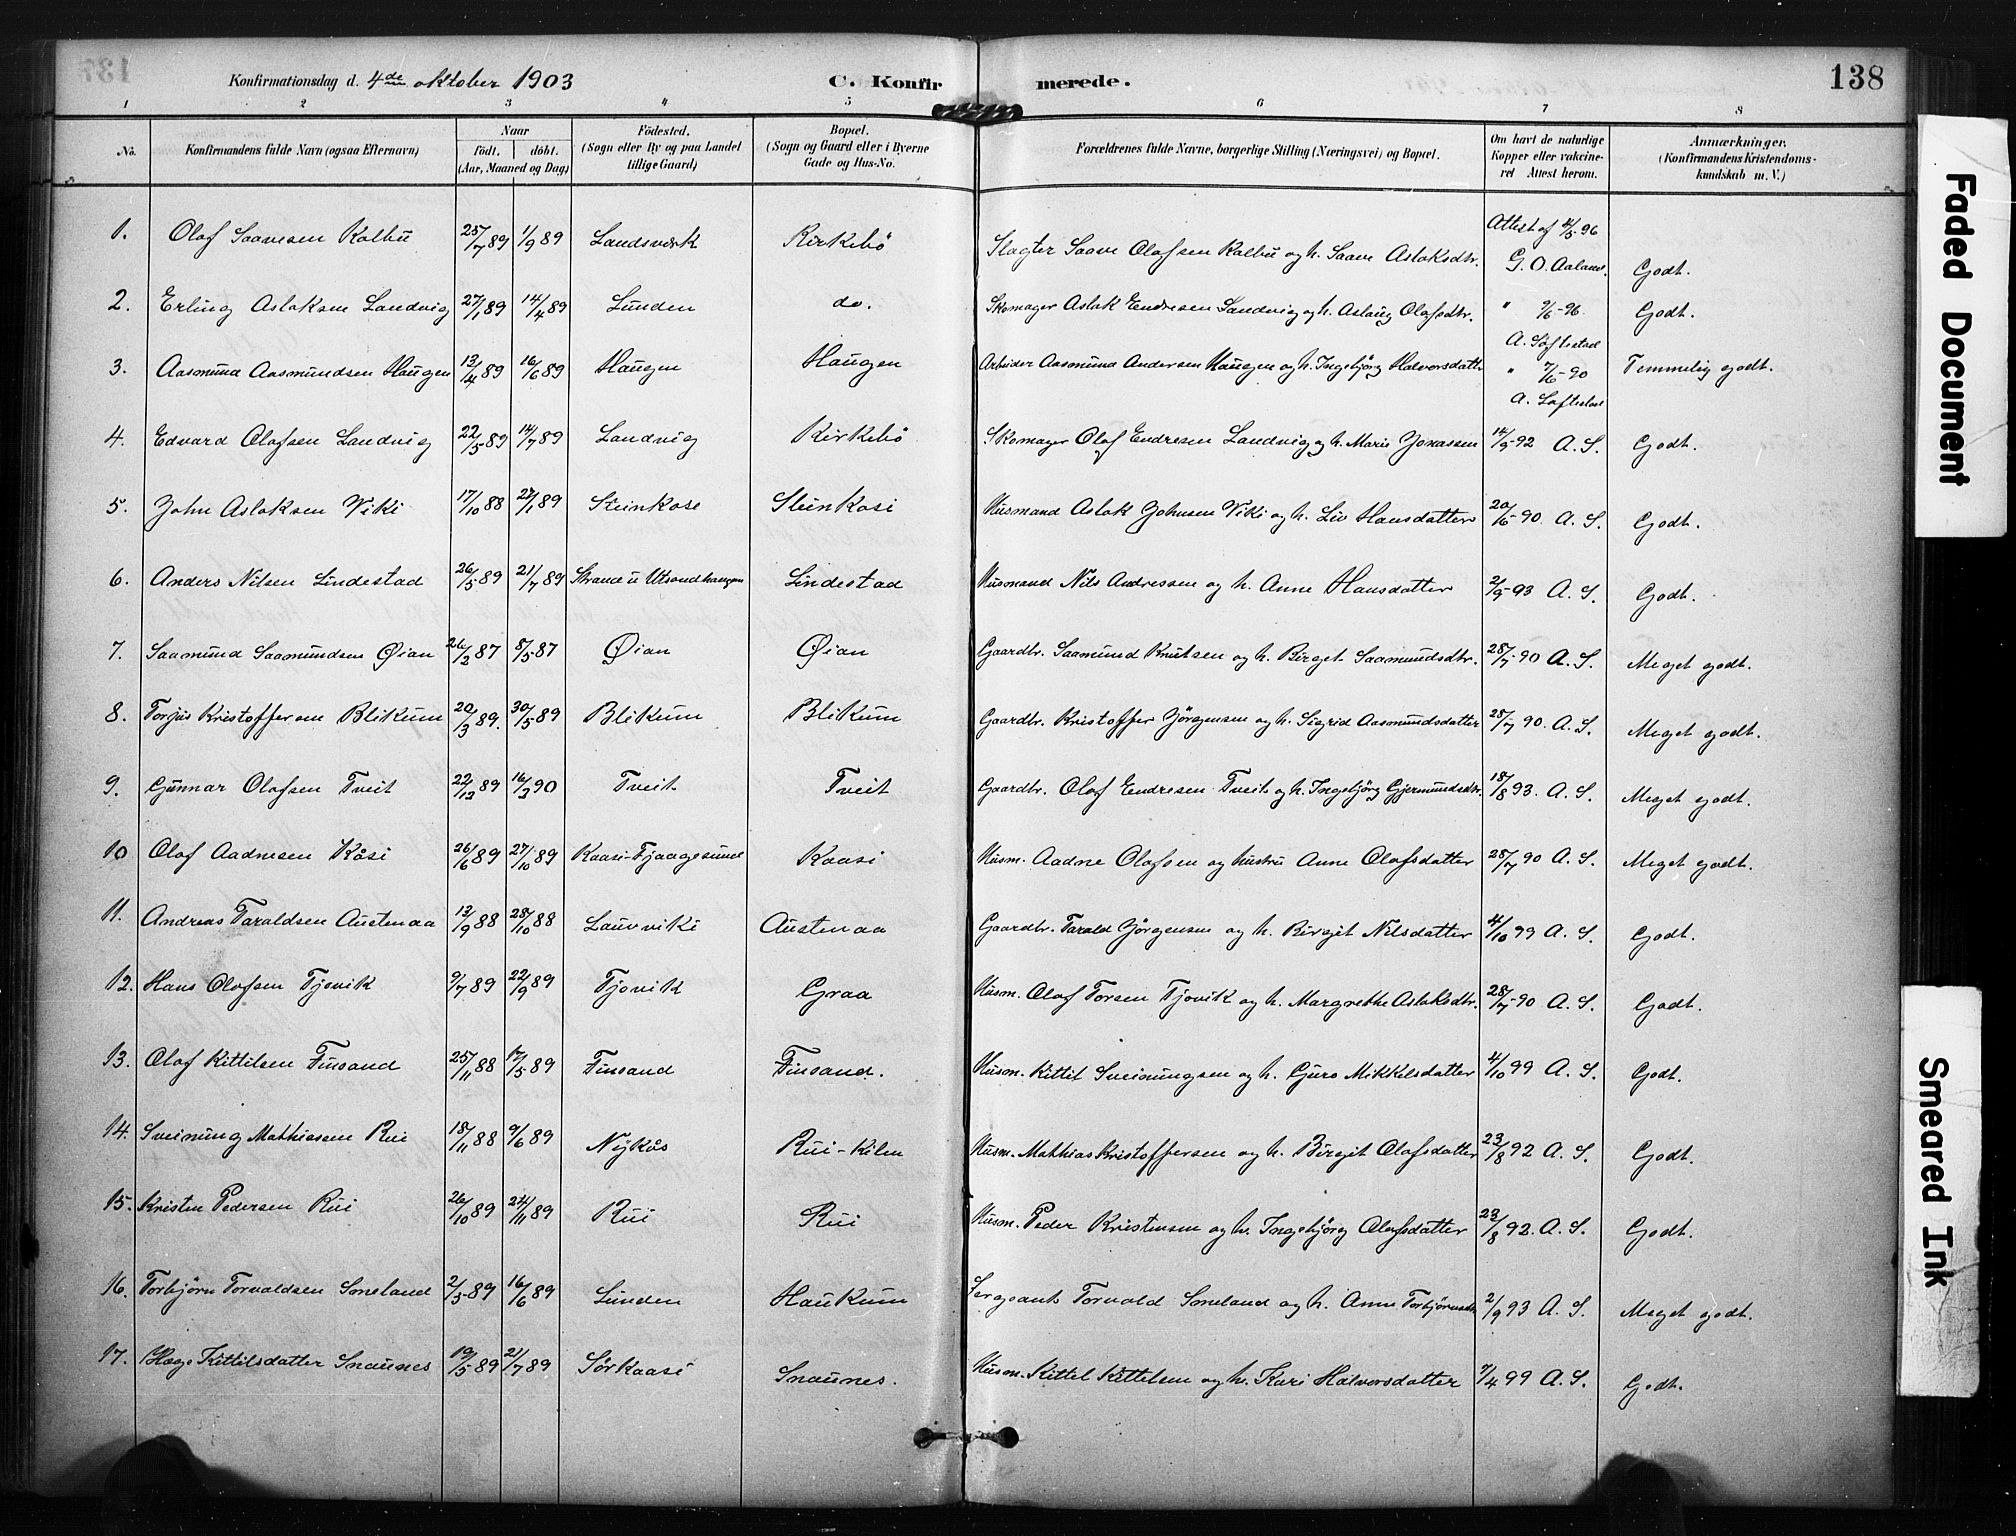 Konfirmationsdag d. 4de oktober 1903 C. Konfirmerede. 138
1 2 3 4 5 6 7 8
No. Konfirmandens fulde Navn (ogsaa Efternavn) Naar födt. döbt. (Aar, Maaned og Dag) Födested. (Sogn eller By og paa Landet tillige Gaard) Bopæl. (Sogn og Gaard eller i Byerne Gade og Hus-No. Forældrenes fulde Navne, borgerlige Stilling (Næringsvei) og Bopæl. Om havt de naturlige Kopper eller vakcineret Attest herom. Anmærkninger. (Konfirmandens Kristendomskundskab m. V.)
1. Olaf Saavesen Kalbu 25/7 89 1/9 89 Landsværk Kirkebö Slagter Saave Olafsen Kalbu og h. Saave Aslaksdtr. Attest af 4/5-96 G. O. Aaland. Godt.
2. Erling Aslaksen Landvig 27/1 89 14/4 89 Lunden do. Skomager Aslak Endresen Landvig og h. Aslaug Olafsdtr. " 9/6-96 A. Löftestad Godt.
3. Aasmund Aasmundsen Haugen 13/4 89 16/6 89 Haugen Haugen Arbeider Aasmund Andersen Haugen og h. Ingebjörg Halvorsdatt. " 7/6-90 A. Löftestad Temmelig godt.
4. Edvard Olafsen Landvig 22/5 89 14/7 89 Landvig Kirkebö Skomager Olaf Endresen Landvig og h. Marie Jonassen 14/9-92 A. S. Godt.
5. John Aslaksen Viki 17/10 88 27/1 89 Steinkase Steinkasi Husmand Aslak Johnsen Viki og h. Liv Hansdatter 20/6-90. A. S. Godt.
6. Anders Nilsen Lindestad 26/5 89 21/7 89 Lindestad Husmand Nils Andressen og h. Anne Hansdatter 2/9-93 A. S. Godt.
7. Saamund Saamundsen Øian 26/2 87 8/5 87 Øian Øian Gaardbr. Saamund Knutsen og h. Birget Saamundsdtr. 28/7-90 A. S. Meget godt.
8. Torjus Kristoffersen Blikum 20/3 89. 30/5 89 Blikum Blikum Gaardbr. Kristoffer Jörgensen og h. Sigrid Aasmundsdatter 28/7 90. A. S. Meget godt.
9. Gunnar Olafsen Tveit 22/12 89 16/2 90 Tveit Tveit Gaardbr. Olaf Endresen Tveit og h. Ingebjörg Gjermundsdtr. 18/8 93. A. S. Meget godt.
10 Olaf Aadnesen Kåsi 26/6 89 27/10 89 Kaasi-Fjaagesund Kaasi Husm. Aadne Olafsen og hustru Anne Olafsdatter 28/7 90 A. S. Meget godt.
11. Andreas Taraldsen Austenaa 13/9 88 28/10 88 Lauvviki Austenaa Gaardbr. Tarald Jörgensen og h. Birgit Nilsdatter 4/10 99 A. S. Godt.
12. Hans Olafsen Tjovik 9/7 89 22/9 89 Tjovik Graa Husm. Olaf Torsen Tjovik og h. Margrethe Aslaksdtr. 28/7-90 A. S. Godt.
13. Olaf Kittilsen Finsand 25/11 88 17/5 89 Finsand Finsand. Husm. Kittil Sveinungsen og h. Guro Mikkelsdatter 4/10 99 A. S. Godt.
14. Sveinung Mathiasen Rui 18/11 88 9/6 89 Nykås Rui-Kilen Husm. Mathias Kristoffersen og h. Birgit Olafsdatter 23/8 92 A. S. Godt.
15. Kristen Pedersen Rui 26/10 89 24/11 89 Rui Rui Husm. Peder Kristensen og h. Ingebjörg Olafsdatter 23/8 92. A. S. Godt.
16. Torbjörn Torvaldsen Soneland 2/3-89 16/6 89 Lunden Haukum Sergeant Torvald Soneland og h. Anne Torbjörnsdtr. 2/9 93 A. S. Meget godt.
17. Hæge Kittilsdatter Snaunes 19/5 89 21/7 89 Sörkaasi Snaunes. Husm. Kittel Kittilsen og h. Kari Halvorsdatter 7/4 99 A. S. Godt.
Faded Document
Smeared Ink